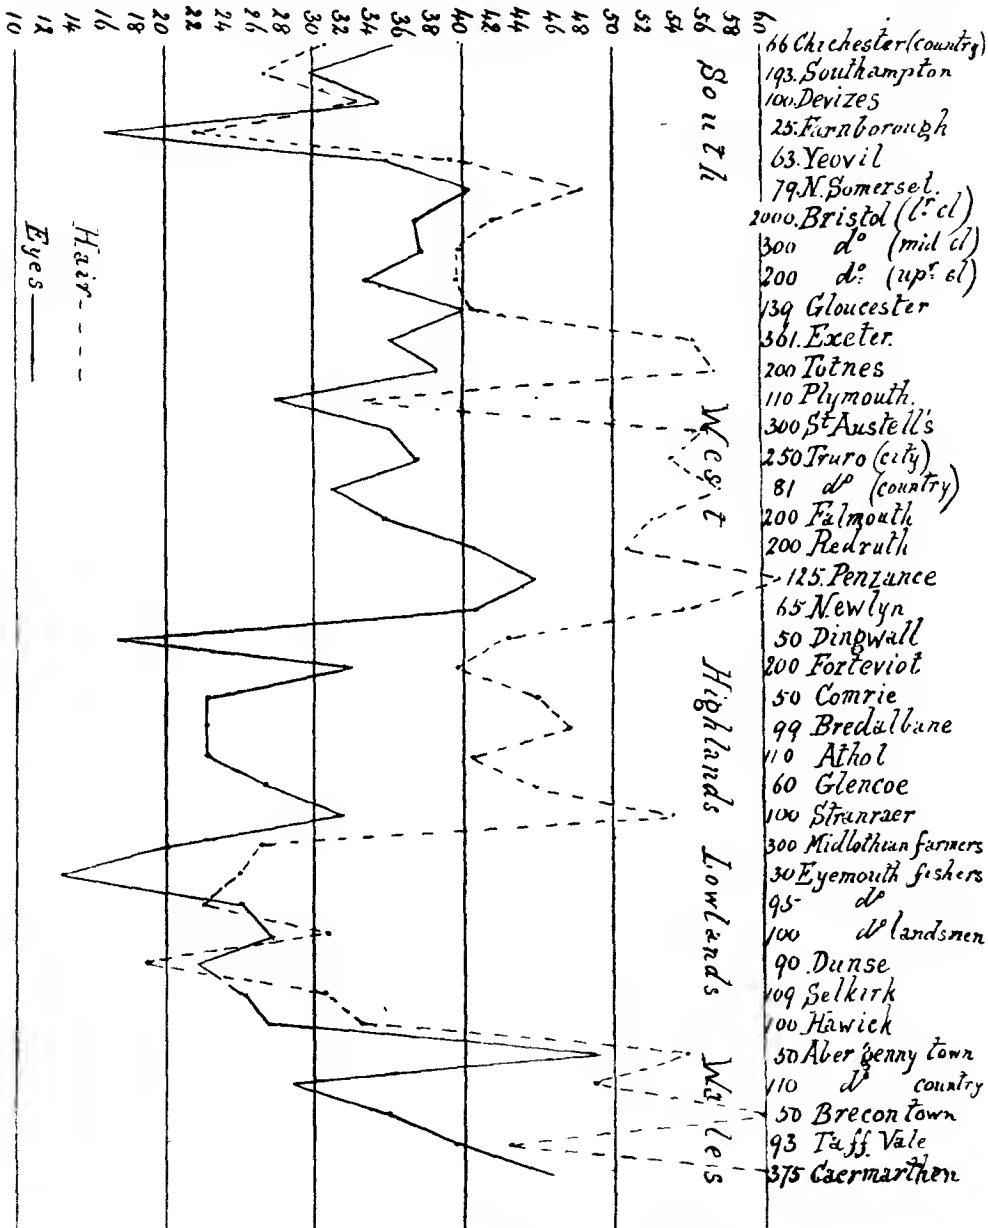 10 12 14 16 18 20 22 24 26 28 30 32 34 36 38 40 42 44 46 48 50 52 54 56 58 60
66 Chichester (country)
193. Southampton
100. Devizes
25. Farnborough
63. Yeovil
79. N. Somerset.
2000. Bristol (lr cl)
300 do (mid cl)
200 do. (upr. cl)
139 Gloucester
361. Exeter.
200 Totnes
110 Plymouth.
300 St Austell's
250 Truro (city)
81 do (country)
200 Falmouth
200 Redruth
125. Penzance
65 Newlyn
50 Dingwall
200 Forteviot
50 Comrie
99 Bredalbane
110 Athol
60 Glencoe
100 Stranraer
300 Midlothian farmers
30 Eyemouth fishers
95 do
100 do landsmen
90. Dunse
109 Selkirk
100 Hawick
50 Aber'genny town
110 do country
50 Brecon town
93 Taff Vale
375 Caermarthen
South
West
Highlands
Lowlands
Wales
Hair
Eyes